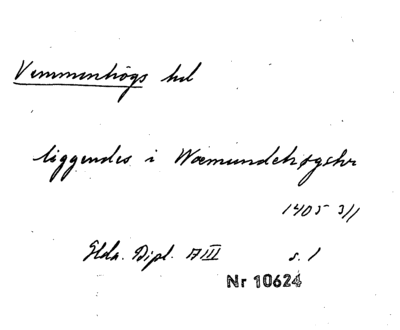 Vemmenhögs hd
liggendes i Wæmundehøgshr
1405 3/1
Dipl. A III s. 1
Nr 10624